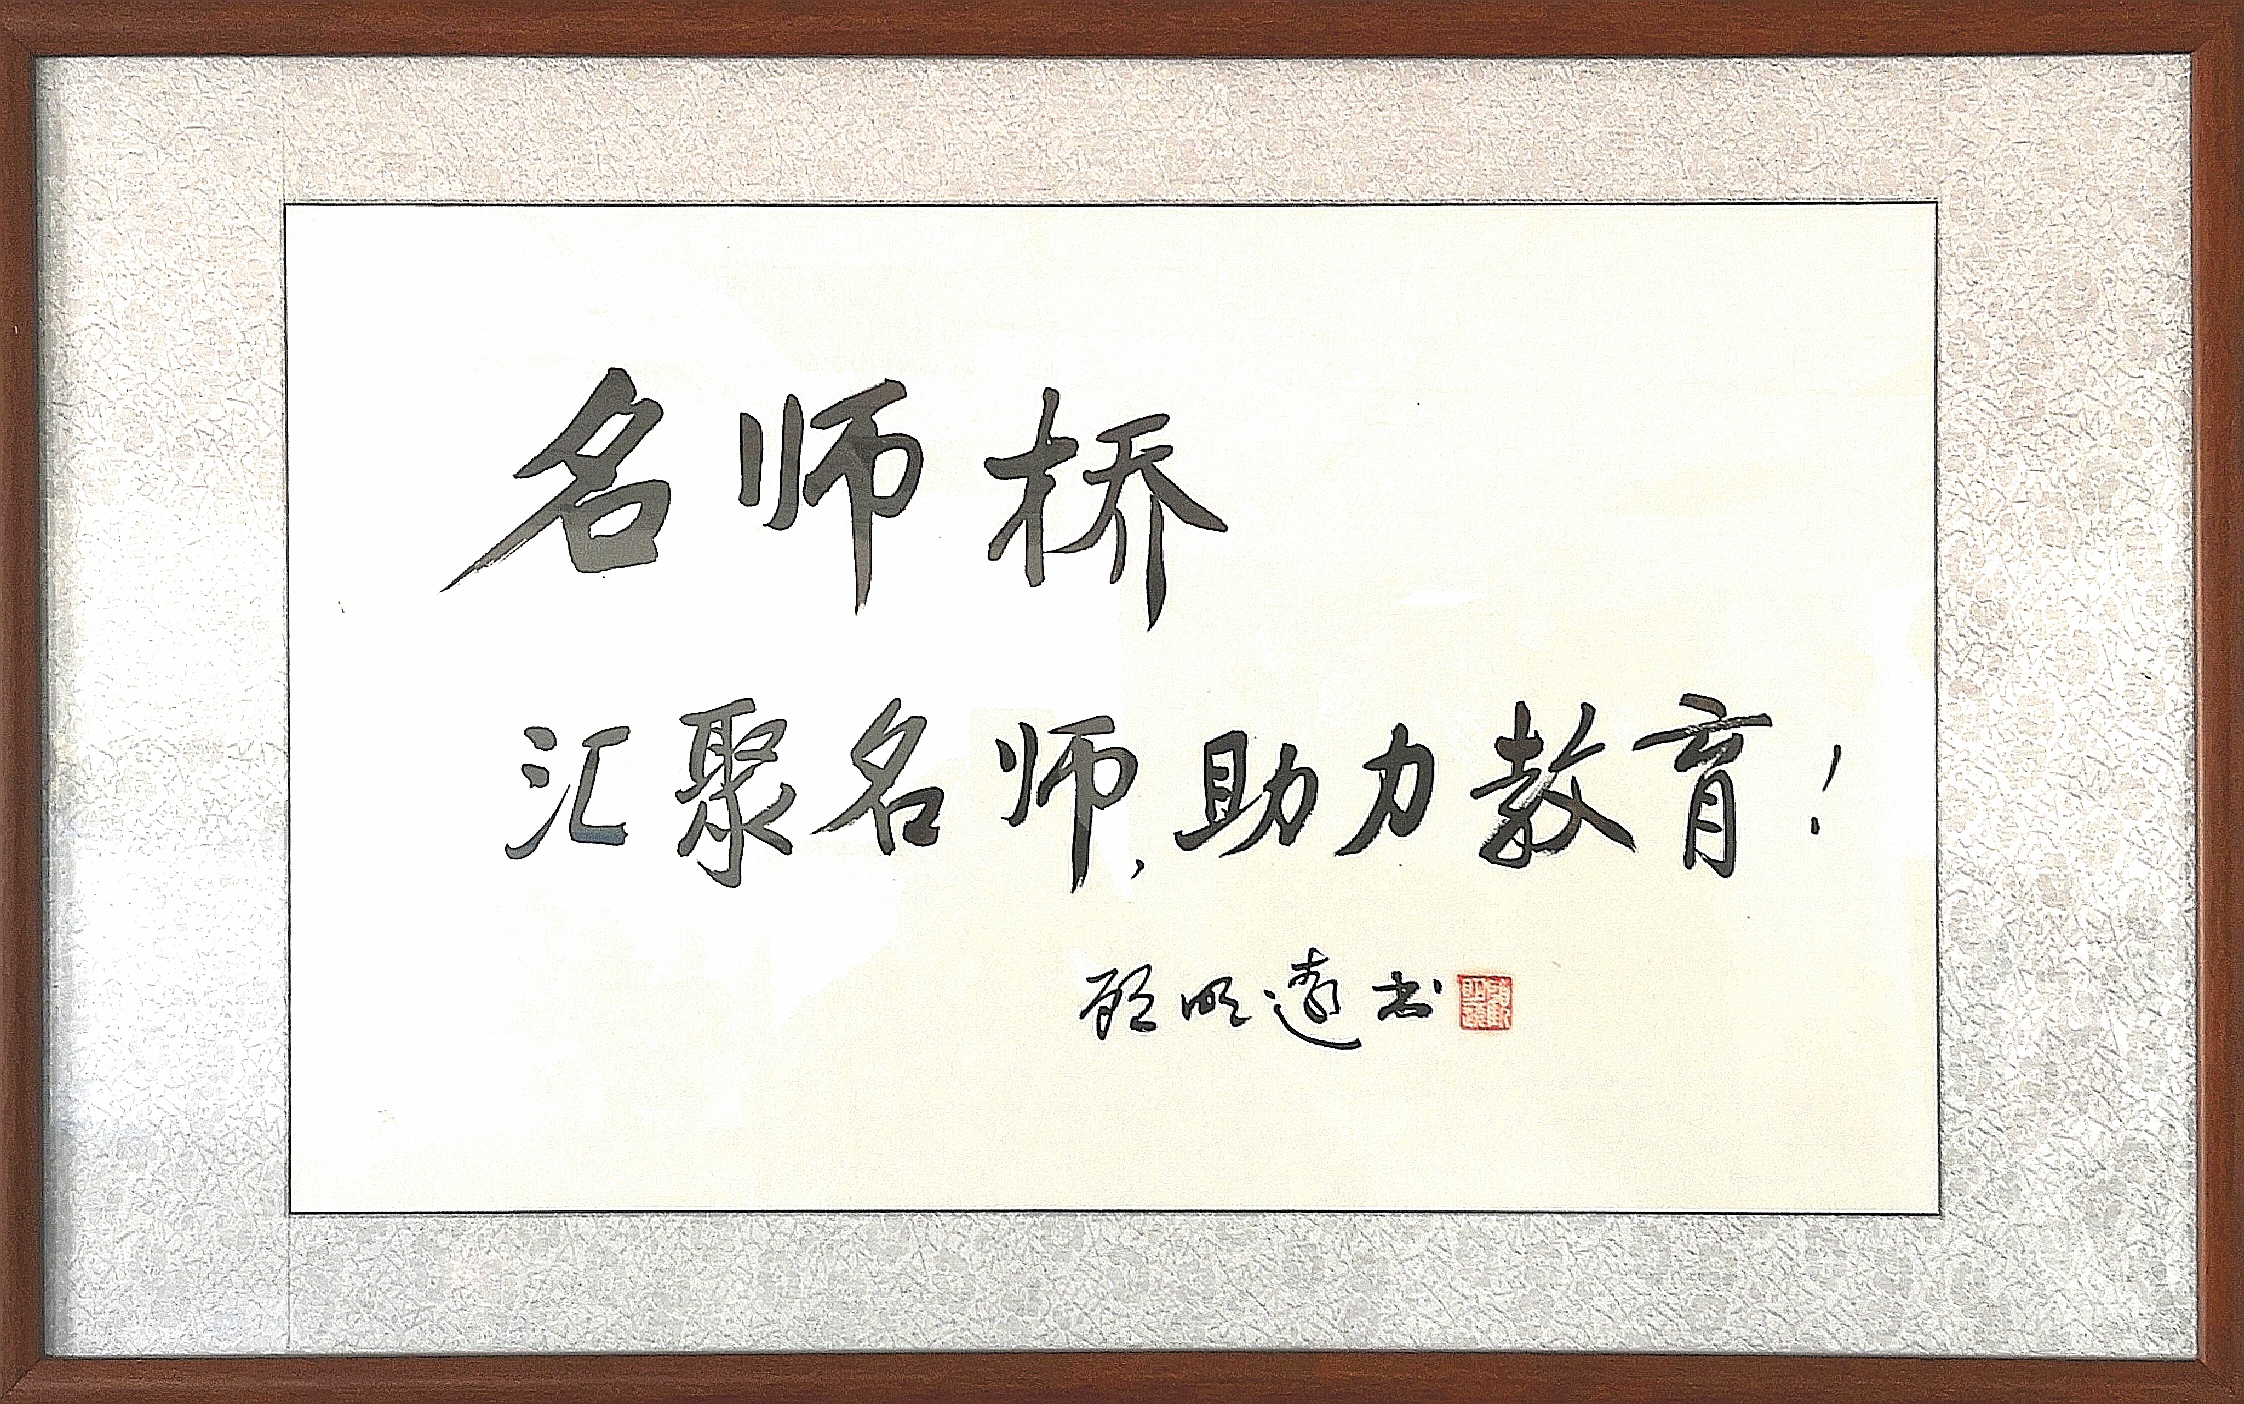 名师桥
汇聚名师,助力教育!
顾明远书